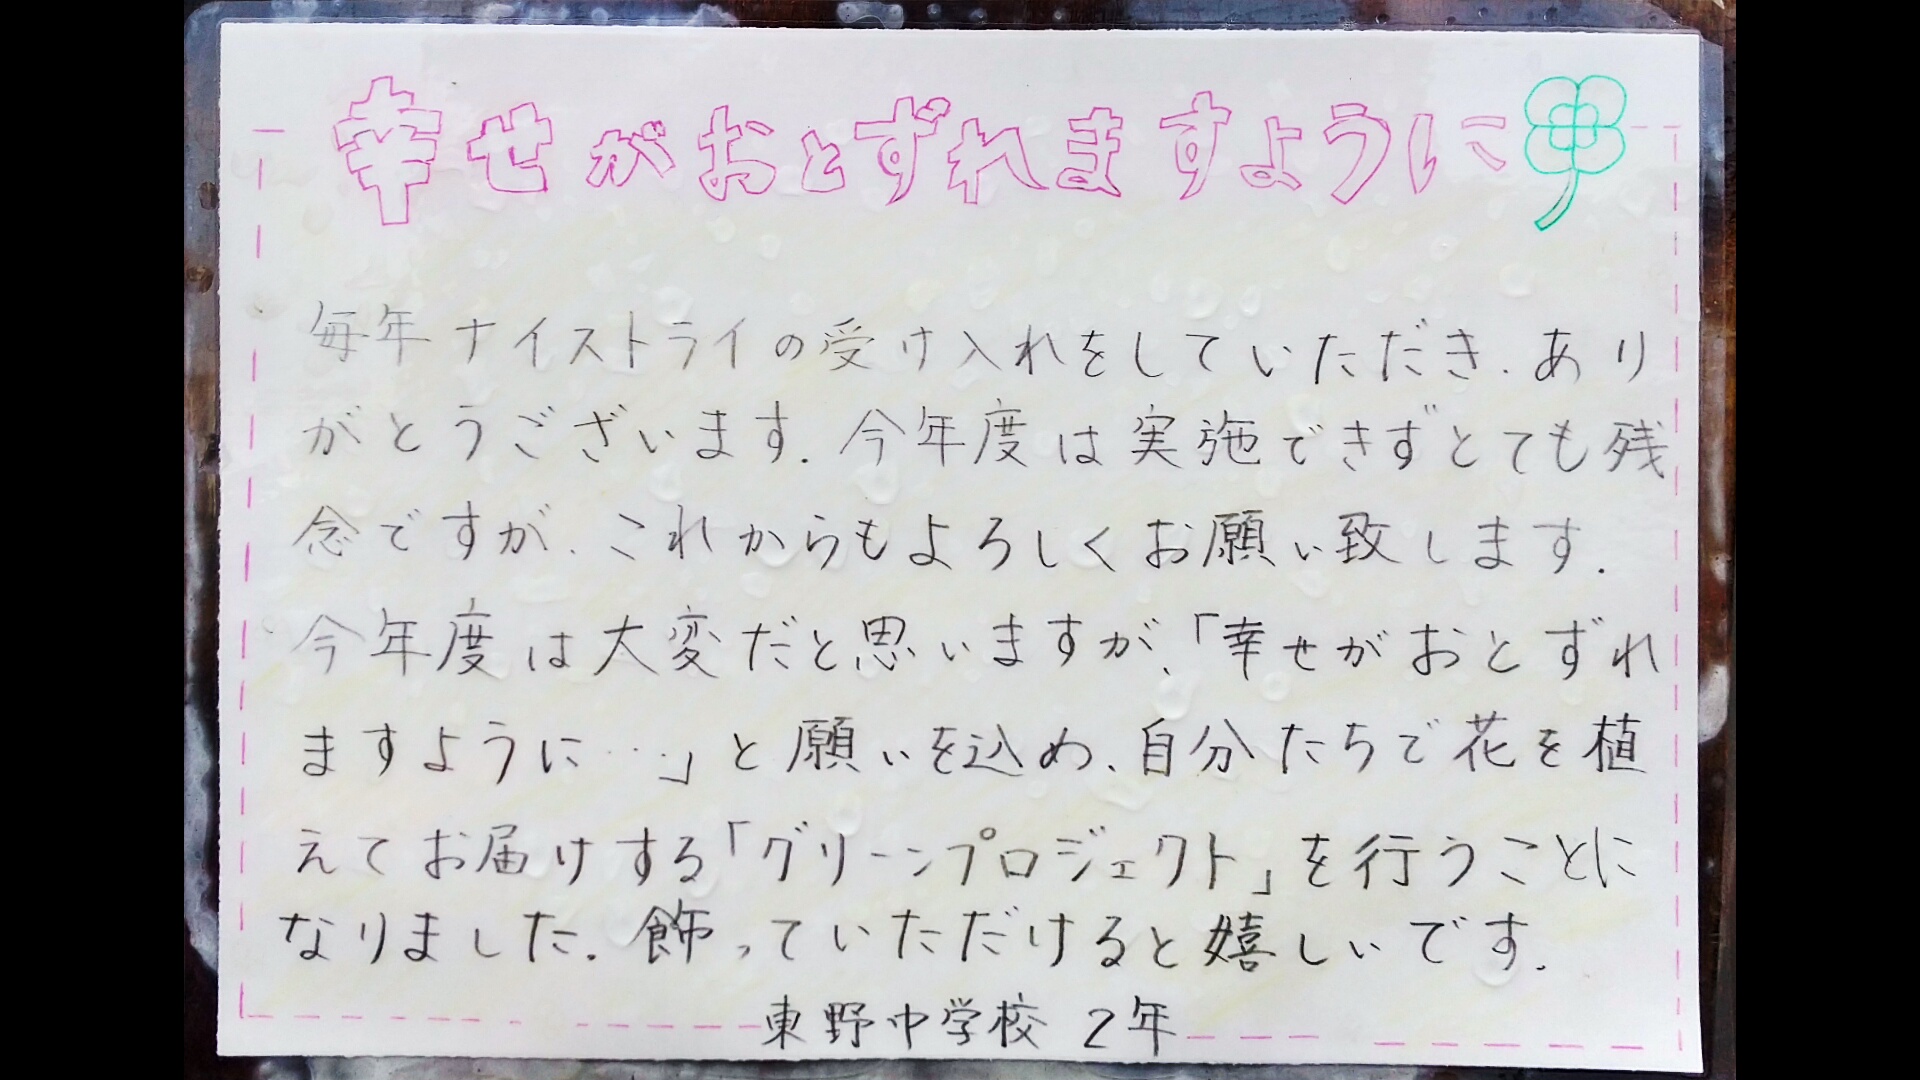 幸せがおとずれますように
毎年ナイストライの受け入れをしていただき、あり
がとうございます。今年度は実施できずとても残
念ですが、これからもよろしくお願い致します。
今年度は大変だと思いますが、「幸せがおとずれ
ますように…」と願いを込め、自分たちで花を植
えてお届けする「グリーンプロジェクト」を行うことに
なりました。飾っていただけると嬉しいです。
東野中学校 2年